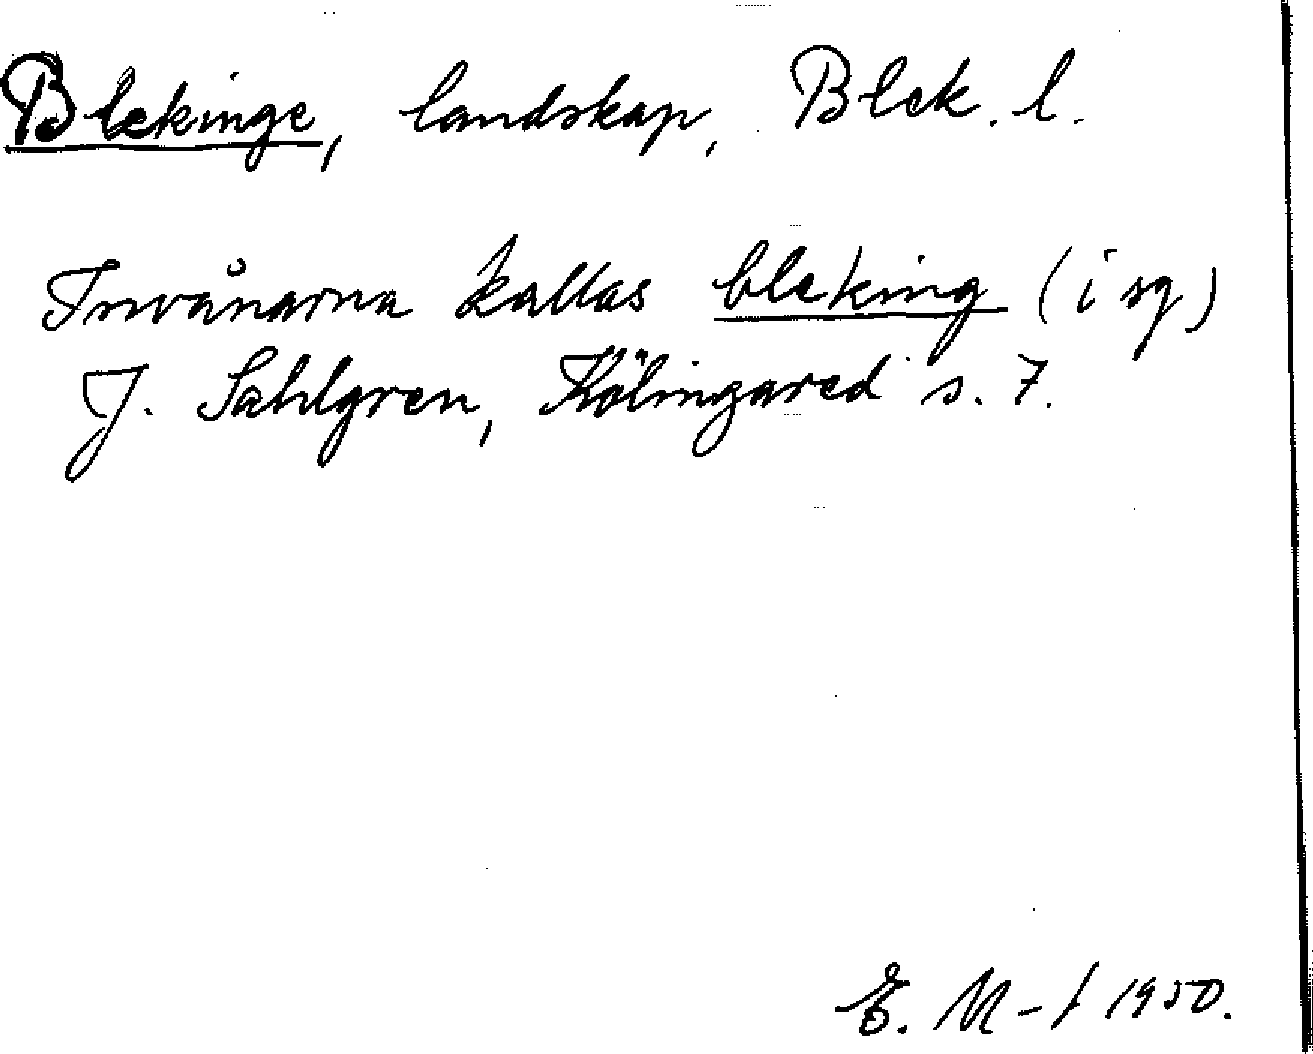 Blekinge, landskap, Blek. l.
Invånarna kallas bleking (i sg)
J. Sahlgren, Kölingared s. 7.
E. M-t 1950.